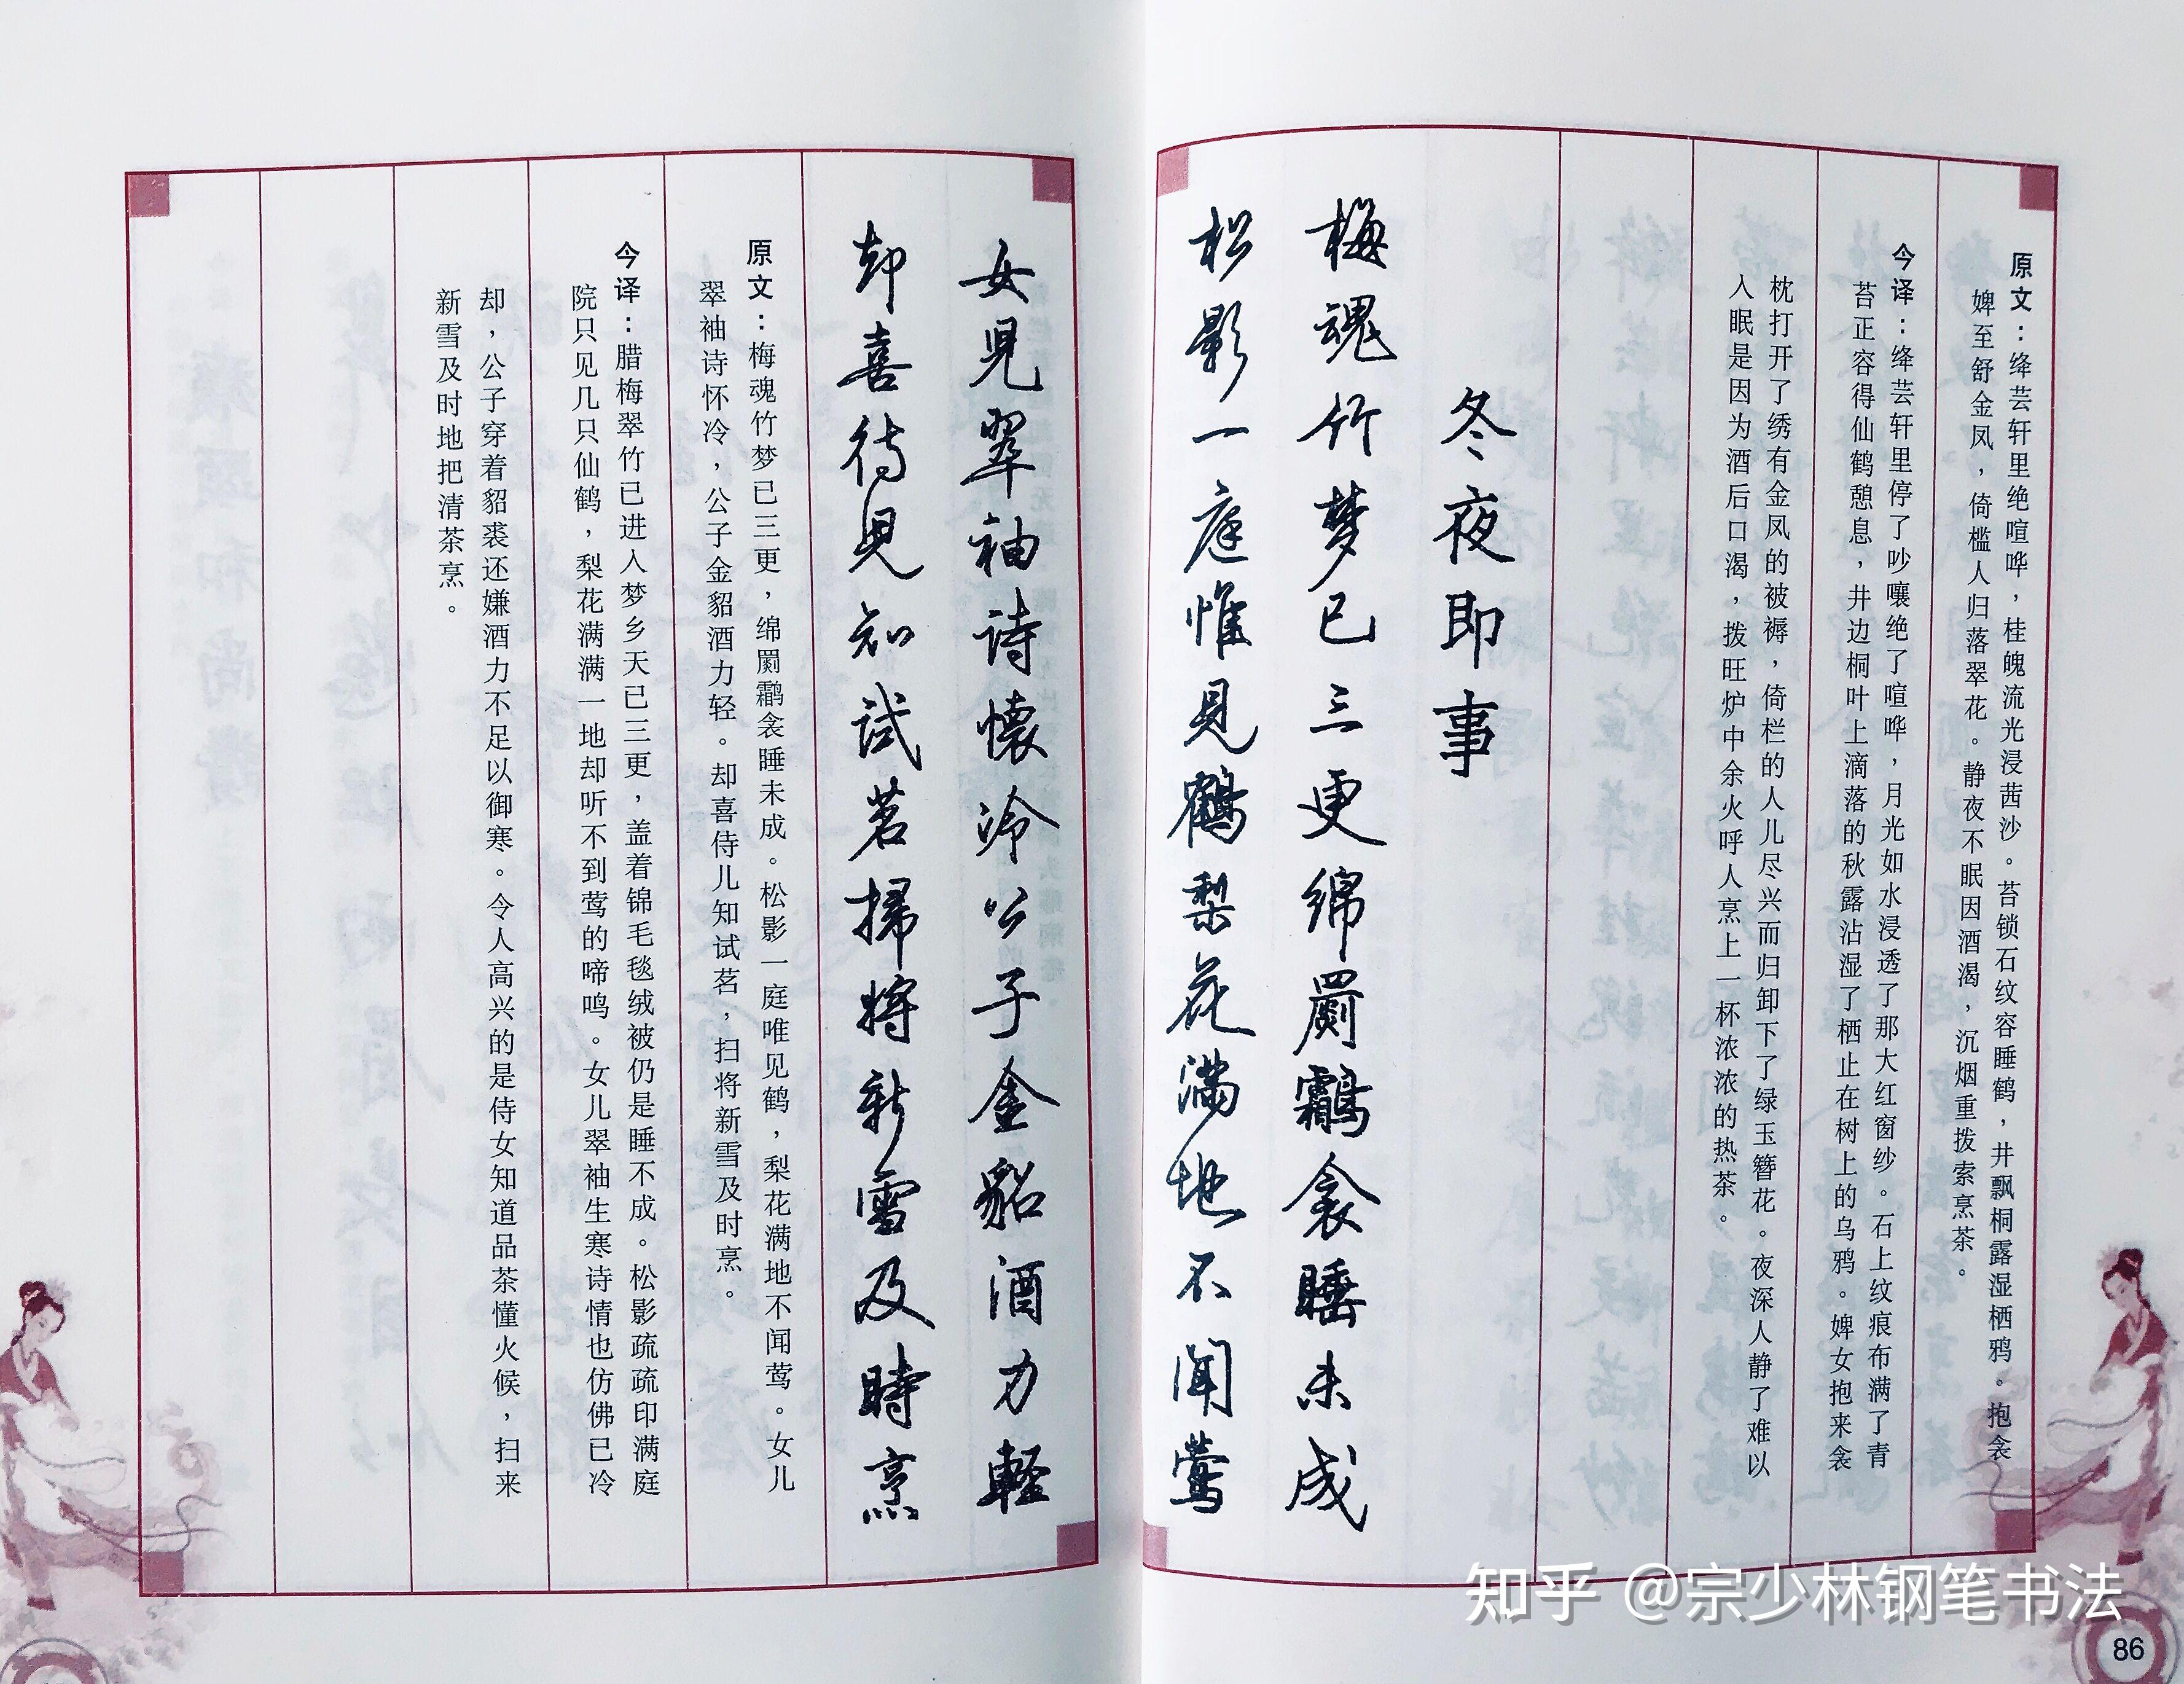 原文：绛芸轩里绝喧哗，桂魄流光浸茜沙。苔锁石纹容睡鹤，井飘桐露湿栖鸦。抱衾
婢至舒金凤，倚槛人归落翠花。静夜不眠因酒渴，沉烟重拨索烹茶。
今译：绛芸轩里停了吵嚷绝了喧哗，月光如水浸透了那大红窗纱。石上纹痕布满了青
苔正容得仙鹤憩息，井边桐叶上滴落的秋露沾湿了栖止在树上的乌鸦。婢女抱来衾
枕打开了绣有金凤的被褥，倚栏的人儿尽兴而归卸下了绿玉簪花。夜深人静了难以
入眠是因为酒后口渴，拨旺炉中余火呼人烹上一杯浓浓的热茶。
冬夜即事
梅魂竹梦已三更绵罽鸘衾睡未成
松影一庭惟見鶴梨花满地不闻莺
女児翠袖诗懷冷公子金貂酒力軽
却喜待児知試茗掃将新雪及時烹
原文：梅魂竹梦已三更，绵罽鹴衾睡未成。松影一庭唯见鹤，梨花满地不闻莺。女儿
翠袖诗怀冷，公子金貂酒力轻。却喜侍儿知试茗，扫将新雪及时烹。
今译：腊梅翠竹已进入梦乡天已三更，盖着锦毛毯绒被仍是睡不成。松影疏疏印满庭
院只见几只仙鹤，梨花满满一地却听不到莺的啼鸣。女儿翠袖生寒诗情也仿佛已冷
却，公子穿着貂裘还嫌酒力不足以御寒。令人高兴的是侍女知道品茶懂火候，扫来
新雪及时地把清茶烹。
知乎 @宗少林钢笔书法
86